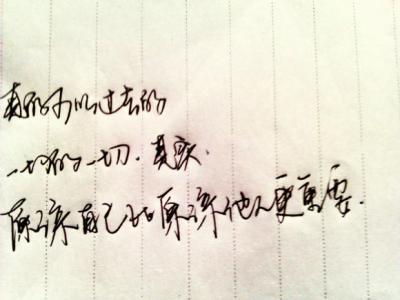 真的可以过去的
一切的一切.真实.
原谅自己比原谅他人更重要.